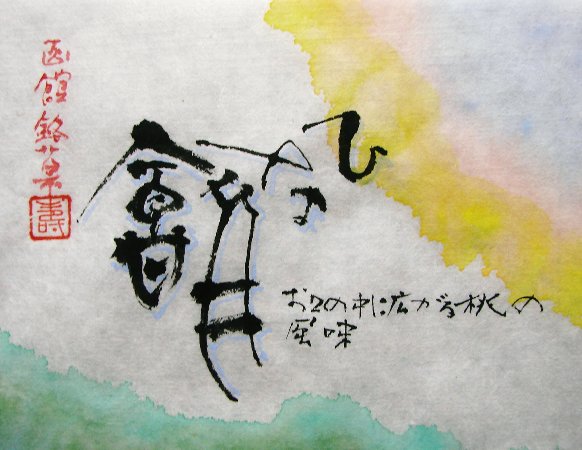 函館銘菓
壽
ひな餅
お口の中に広がる桃の
風味